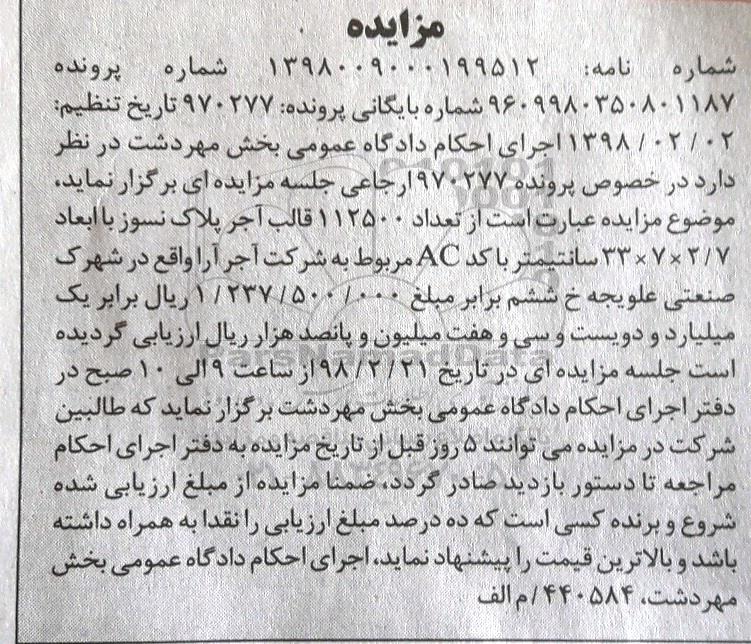 مزایده
شماره نامه: ۱۳۹۸۰۰۹۰۰۰۱۹۹۵۱۲ شماره پرونده
۹۶۰۹۹۸۰۳۵۰۸۰۱۱۸۷ شماره بایگانی پرونده: ۹۷۰۲۷۷ تاریخ تنظیم:
۱۳۹۸/۰۲/۰۲ اجرای احکام دادگاه عمومی بخش مهردشت در نظر
دارد در خصوص پرونده ۹۷۰۲۷۷ ارجاعی جلسه مزایده ای برگزار نماید،
موضوع مزایده عبارت است از تعداد ۱۱۲۵۰۰ قالب آجر پلاک نسوز با ابعاد
۳۳×۷×۲/۷ سانتیمتر با کد AC مربوط به شرکت آجر آرا واقع در شهرک
صنعتی علویجه خ ششم برابر مبلغ ۱/۲۳۷/۵۰۰/۰۰۰ ریال برابر یک
میلیارد و دویست و سی و هفت میلیون و پانصد هزار ریال ارزیابی گردیده
است جلسه مزایده ای در تاریخ ۹۸/۲/۲۱ از ساعت ۹ الی ۱۰ صبح در
دفتر اجرای احکام دادگاه عمومی بخش مهردشت برگزار نماید که طالبین
شرکت در مزایده می توانند ۵ روز قبل از تاریخ مزایده به دفتر اجرای احکام
مراجعه تا دستور بازدید صادر گردد، ضمنا مزایده از مبلغ ارزیابی شده
شروع و برنده کسی است که ده درصد مبلغ ارزیابی را نقدا به همراه داشته
باشد و بالاترین قیمت را پیشنهاد نماید، اجرای احکام دادگاه عمومی بخش
مهردشت، ۴۴۰۵۸۴/م الف
ParsNamadData